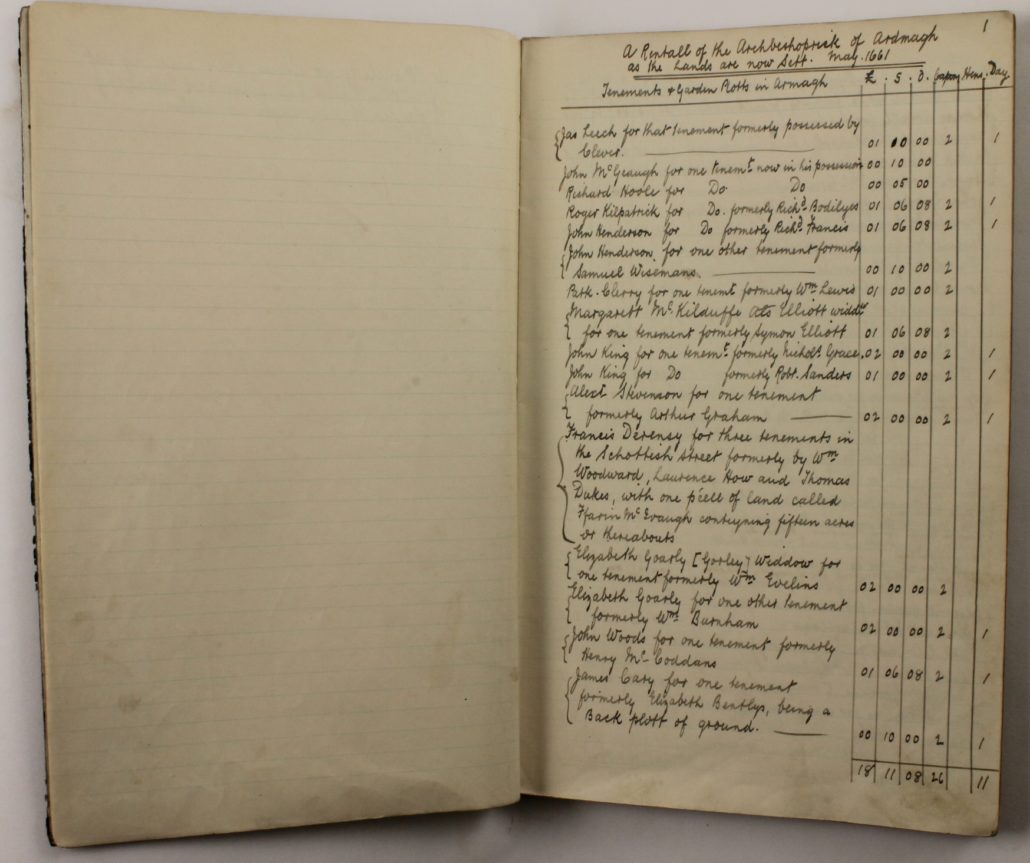 1
A Rentall of the Archbeshoprick of Ardmagh
as the Lands are now Sett. May. 1661
Tenements & Garden Plotts in Armagh £. S. D. Capons Hens. Day
Jas Leech for that tenement formerly possessed by
Clever. 01 10 00 2 1
John McGeaugh for one tenemt now in his possession 00 10 00
Richard Hoole for Do Do 00 05 00
Roger Kilpatrick for Do. formerly Richd Bodilyes 01 06 08 2 1
John Henderson for Do formerly Richd Francis 01 06 08 2 1
John Henderson, for one other tenement formerly
Samuel Wisemans. 00 10 00 2
Patk. Clerry for one tenemt formerly Wm Lewis 01 00 00 2
Margarett Mc Kilduffe als Elliott widdw
for one tenement formerly Symon Elliott 01 06 08 2
John King for one tenemt formerly Nichols Grace. 02 00 00 2 1
John King for Do formerly Robt. Sanders 01 00 00 2 1
Alexr Stevenson for one tenement
formerly Arthur Graham 02 00 00 2 1
Francis Derensy for three tenements in
the Schottish street formerly by Wm
Woodward, Laurence How and Thomas
Dukes, with one pcell of land called
Ffarin Mc Evaugh conteyning fifteen acres
or thereabouts
Elizabeth Goarly [Gorley] Widdow for
one tenement formerly Wm Evelins 02 00 00 2
Elizabeth Goarly for one other tenement
formerly Wm Burnham 02 00 00 2 1
John Woods for one tenement formerly
Henry Mc Coddans 01 06 08 2 1
James Cary for one tenement
formerly Elizabeth Bentlys, being a
Back plott of ground. 00 10 00 2 1
18 11 08 26 11